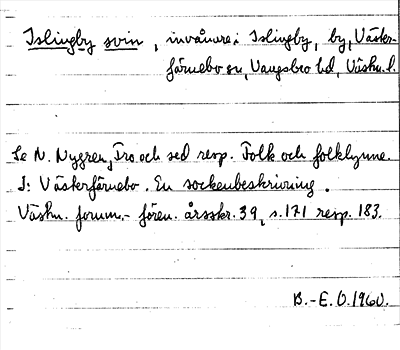 Islingby svin, invånare i Islingby, by, Väster-
färnebo sn, Vangsbro hd, Västm. l.
Se N. Nygren, Tro och sed resp. Folk och folklynne.
I: Västerfärnebo. En sockenbeskrivning.
Västm. fornm.-fören. årsskr. 39, s. 171 resp. 183.
B.-E. Ö. 1960.